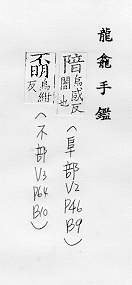 龍龕手鑑
隌烏感反
闇也
(阜部 V2 P46 B9)
烏紺
反
(不部 V3 P64 B10)